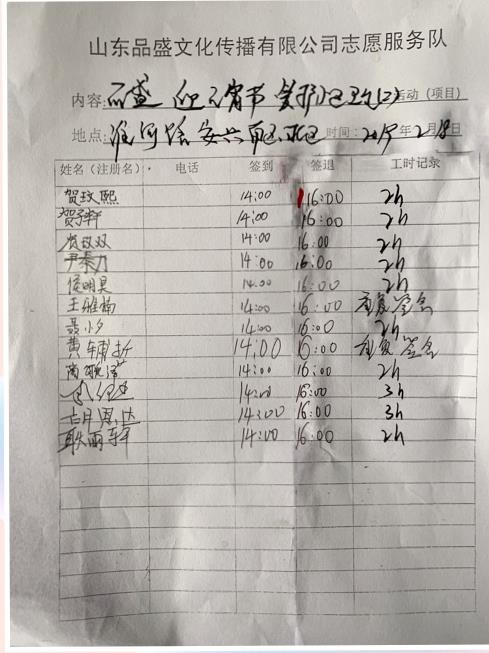 山东品盛文化传播有限公司志愿服务队
内容: 品盛 迎元宵节 活动（项目）
地点: 时间: 2019年2月18日
姓名（注册名） 电话 签到 签退 工时记录
贺玟熙 14:00 16:00 2h
贺子轩 14:00 16:00 2h
贺玟双 14:00 16:00 2h
尹泰力 14:00 16:00 2h
侯明昊 14:00 16:00 2h
王雅楠 14:00 16:00 重复签名
聂小夕 14:00 16:00 2h
黄辅折 14:00 16:00 重复签名
14:00 16:00 2h
14:00 16:00 3h
14:00 16:00 3h
耿雨轩 14:00 16:00 2h